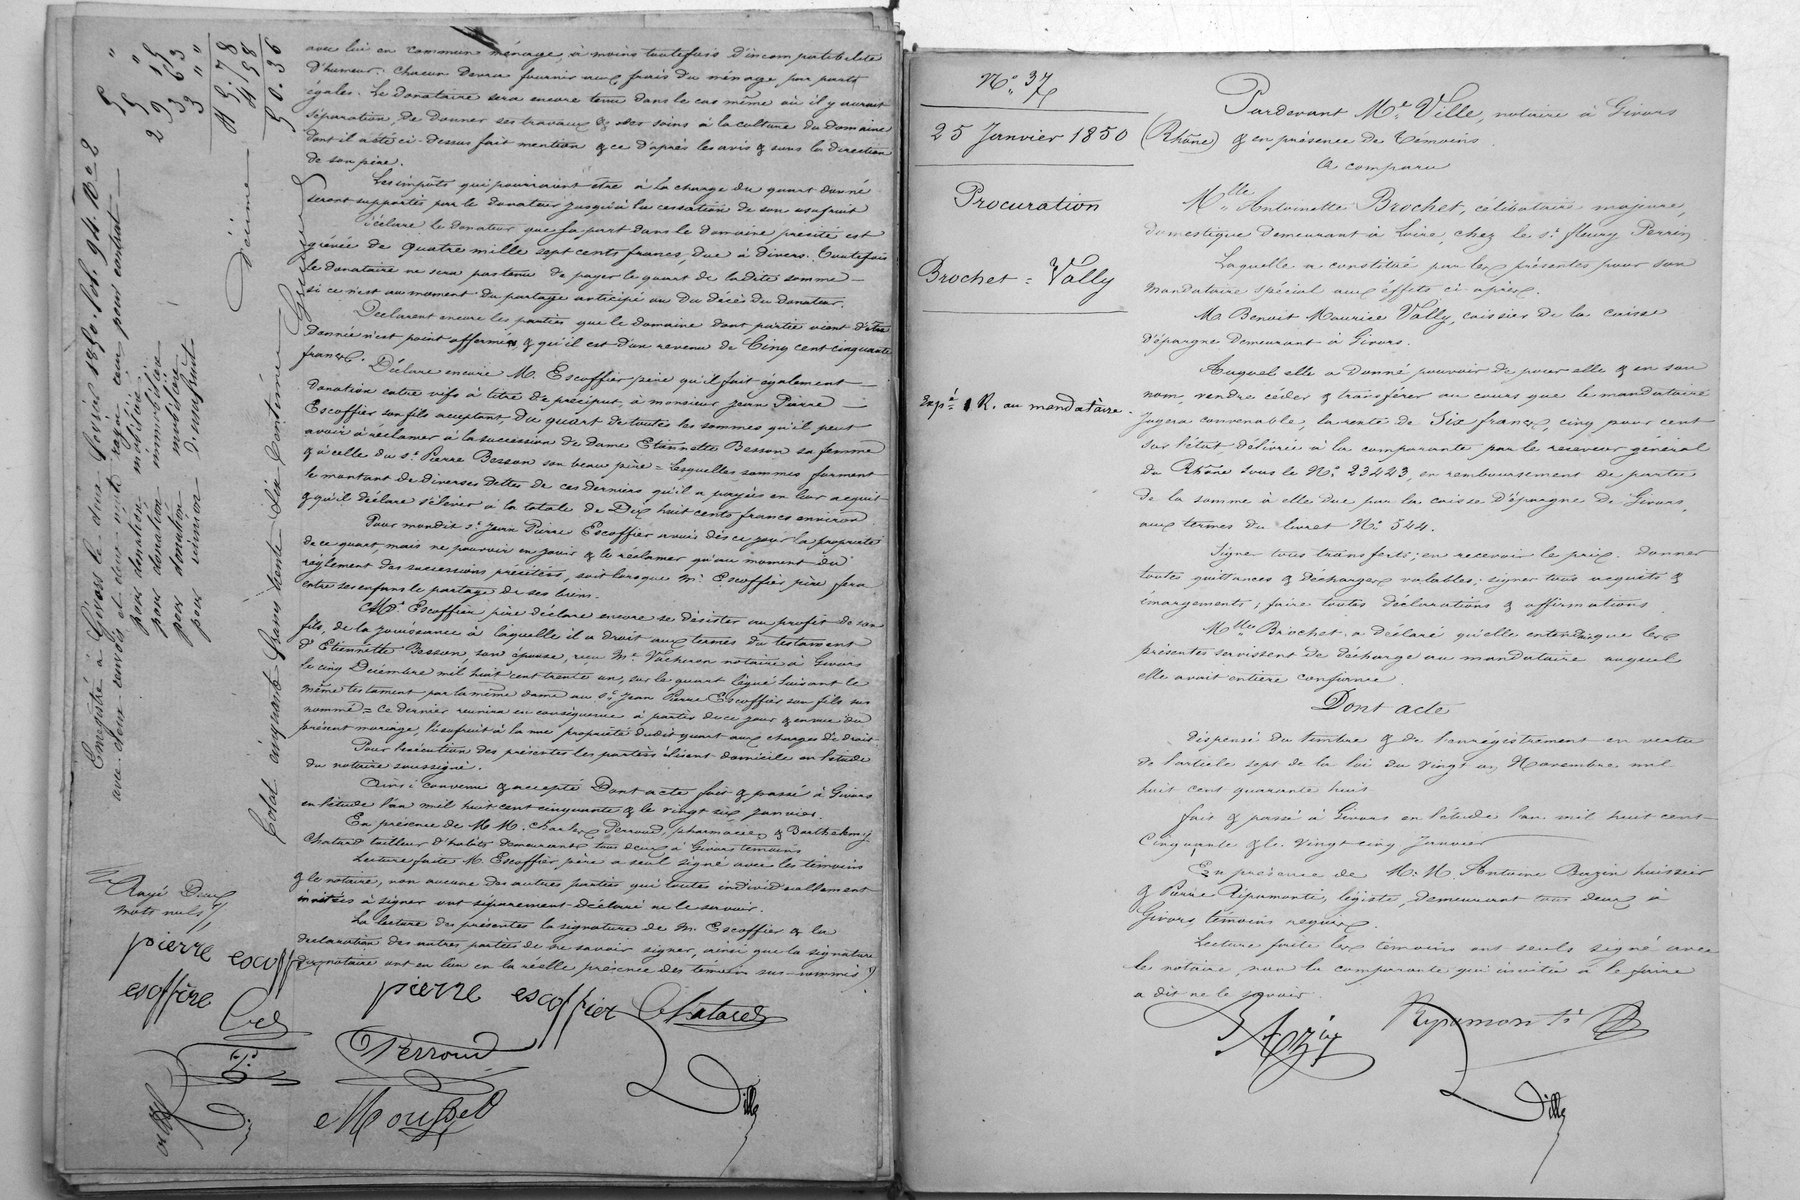 avec lui en commun ménage, à moins toutefois d'incompatibilité
d'humeur. Chacun devra fournir aux frais du ménage par parts
égales. Le donataire sera encore tenu dans le cas même où il y aurait
séparation, de donner ses travaux & ses soins à la culture du domaine
dont il a été ci-dessus fait mention & ce d'après les avis & sous la direction
de son père.
Les impôts qui pourraient être à la charge du quart donné
seront supportés par le donateur jusqu'à la cessation de son usufruit
Déclare le donateur que sa part dans le domaine précité est
grévée de quatre mille sept cents francs, due à divers. Toutefois
le donataire ne sera pas tenu de payer le quart de ladite somme
si ce n'est au moment du partage anticipé ou du décès du donateur.
Déclarent encore les parties que le domaine dont partie vient d'être
donnée n'est point affermé & qu'il est d'un revenu de Cinq cent cinquante
francs. Déclare encore M. Escoffier père qu'il fait également
donation entre vifs à titre de préciput, à monsieur Jean Pierre
Escoffier son fils acceptant, du quart de toutes les sommes qu'il peut
avoir à réclamer à la succession de dame Etiennette Besson sa femme
& à celle du sr. Pierre Besson son beau père = lesquelles sommes forment
le montant de diverses dettes de ces derniers qu'il a payées en leur acquit
& qu'il déclare s'élever à la totale de Dix huit cents francs environ
Pour mondit sr. Jean Pierre Escoffier avoir dès ce jour la propriété
de ce quart, mais ne pouvoir en jouir & le réclamer qu'au moment du
règlement des successions précitées, soit lorsque Mr. Escoffier père fera
entre ses enfans le partage de ses biens.
Mr. Escoffier père déclare encore se désister au profit de son
fils, de la jouissance à laquelle il a droit aux termes du testament
d'Etiennette Besson, son épouse, reçu Me. Vacheron notaire à Givors
le cinq Décembre mil huit cent trente un, sur le quart légué suivant le
même testament par la même dame au sr. Jean Pierre Escoffier son fils sus
nommé = ce dernier réunira en conséquence à partir de ce jour & en vue du
présent mariage, l'usufruit à la nue propriété dudit quart aux charges de droit
Pour l'exécution des présentes les parties élisent domicile en l'étude
du notaire soussigné.
Ainsi convenu & accepté Dont acte fait & passé à Givors
en l'étude l'an mil huit cent cinquante & le vingt six janvier.
En présence de M.M. Charles Perroud, pharmacien & Barthélemy
Chatard tailleur d'habits demeurants tous deux à Givors témoins
Lecture faite M. Escoffier père a seul signé avec les témoins
& le notaire, non aucune des autres parties qui toutes individuellement
invitées à signer ont séparement déclaré ne le savoir.
La lecture des présentes la signature de M. Escoffier & la
declaration des autres parties de ne savoir signer, ainsi que la signature
du notaire ont eu lieu en la réelle présence des témoins sus-nommés
Rayé Deux
mots nuls
pierre escoff
escoffier
pierre escoffier Chatard
Perroud
Ville
Enregistré à Givors le deux février 1850. fol. 94. Vo c 2
avec deux renvois et reçu cinq francs pour contrat 5 "
pour donation mobilière 5 "
pour donation immobilière 29 15
pour donation mobilière 3 63
pour réunion d'usufruit 3 "
45 78
Décime 4 58
50.36
Total cinquante francs trente six centimes
No. 37
25 Janvier 1850
Procuration
Brochet = Vally
Expé. 1 R. au mandataire.
Pardevant Me. Ville, notaire à Givors
(Rhône) & en présence de Témoins.
A comparu
Mlle. Antoinette Brochet, célibataire majeure,
domestique demeurant à Loire, chez le sr. fleury Perrin
Laquelle a constitué par les présentes pour son
mandataire spécial aux effets ci-après.
M. Benoit Maurice Vally, caissier de la caisse
d'épargne demeurant à Givors.
Auquel elle a donné pouvoir de pour elle & en son
nom, vendre céder & transférer au cours que le mandataire
jugera convenable, la rente de Six francs, cinq pour cent
sur l'état, délivrée à la comparante par le receveur général
du Rhône sous le No. 23423, en remboursement de partie
de la somme à elle due par la caisse d'épargne de Givors,
aux termes du livret No. 544.
Signer tous transferts; en recevoir le prix. donner
toutes quittances & décharges valables; signer tous acquits &
émargements; faire toutes déclarations & affirmations.
Mlle Brochet a déclaré qu'elle entendait que les
présentes servissent de décharge au mandataire auquel
elle avait entière confiance.
Dont acte
dispensé du timbre & de l'enrégistrement en vertu
de l'article sept de la loi du vingt un Novembre mil
huit cent quarante huit
fait & passé à Givors en l'étude l'an mil huit cent
Cinquante & le vingt cinq Janvier
En présence de M.M. Antoine Bazin huissier
& Pierre Ripamonti, légiste, demeurant tous deux à
Givors témoins requis.
Lecture faite les témoins ont seuls signé avec
le notaire, non la comparante qui invitée à le faire
a dit ne le savoir.
Bazin Rypamonti
Ville